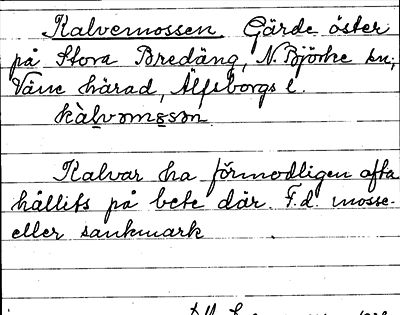 Kalvemossen. Gärde öster
på Stora Bredäng, N. Björke sn;
Väne härad, Älfsborgs l.
kàlvəmɷsən
Kalvar ha förmodligen ofta
hållits på bete där. F.d. mosse
eller sankmark